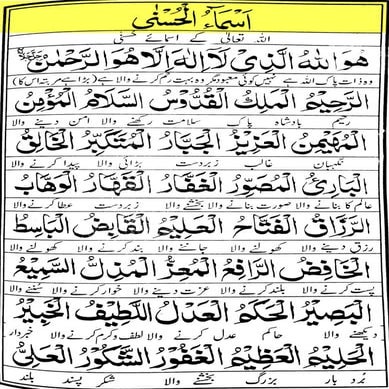 اسماءُ الحُسنٰی
اللہ تعالیٰ کے اسمائے حسنٰی
هُوَ اللهُ الَّذِیْ لَا اِلٰهَ اِلَّا هُوَ الرَّحْمٰنُ
وہ ذات پاک اللہ ہے نہیں کوئی معبود مگر وہ بہت رحم کرنے والا ہے
الرَّحِيْمُ الْمَلِكُ الْقُدُّوْسُ السَّلَامُ الْمُؤْمِنُ
رحیم بادشاہ پاک سلامت رکھنے والا امن دینے والا
الْمُهَيْمِنُ الْعَزِيْزُ الْجَبَّارُ الْمُتَكَبِّرُ الْخَالِقُ
نگہبان غالب زبردست بڑائی والا پیدا کرنے والا
الْبَارِئُ الْمُصَوِّرُ الْغَفَّارُ الْقَهَّارُ الْوَهَّابُ
عالم کا بنانے والا صورت بنانے والا بخشنے والا زبردست عطا کرنے والا
الرَّزَّاقُ الْفَتَّاحُ الْعَلِيْمُ الْقَابِضُ الْبَاسِطُ
رزق دینے والا کھولنے والا جاننے والا بند کرنے والا کھولنے والا
الْخَافِضُ الرَّافِعُ الْمُعِزُّ الْمُذِلُّ السَّمِيْعُ
پست کرنے والا بلند کرنے والا عزت دینے والا خوار کرنے والا سننے والا
الْبَصِيْرُ الْحَكَمُ الْعَدْلُ اللَّطِيْفُ الْخَبِيْرُ
دیکھنے والا حاکم عدل کرنے والا لطف و کرم کرنے والا خبردار
الْحَلِيْمُ الْعَظِيْمُ الْغَفُوْرُ الشَّكُوْرُ الْعَلِيُّ
بُرد بار بزرگ بخشنے والا شکر پسند بلند